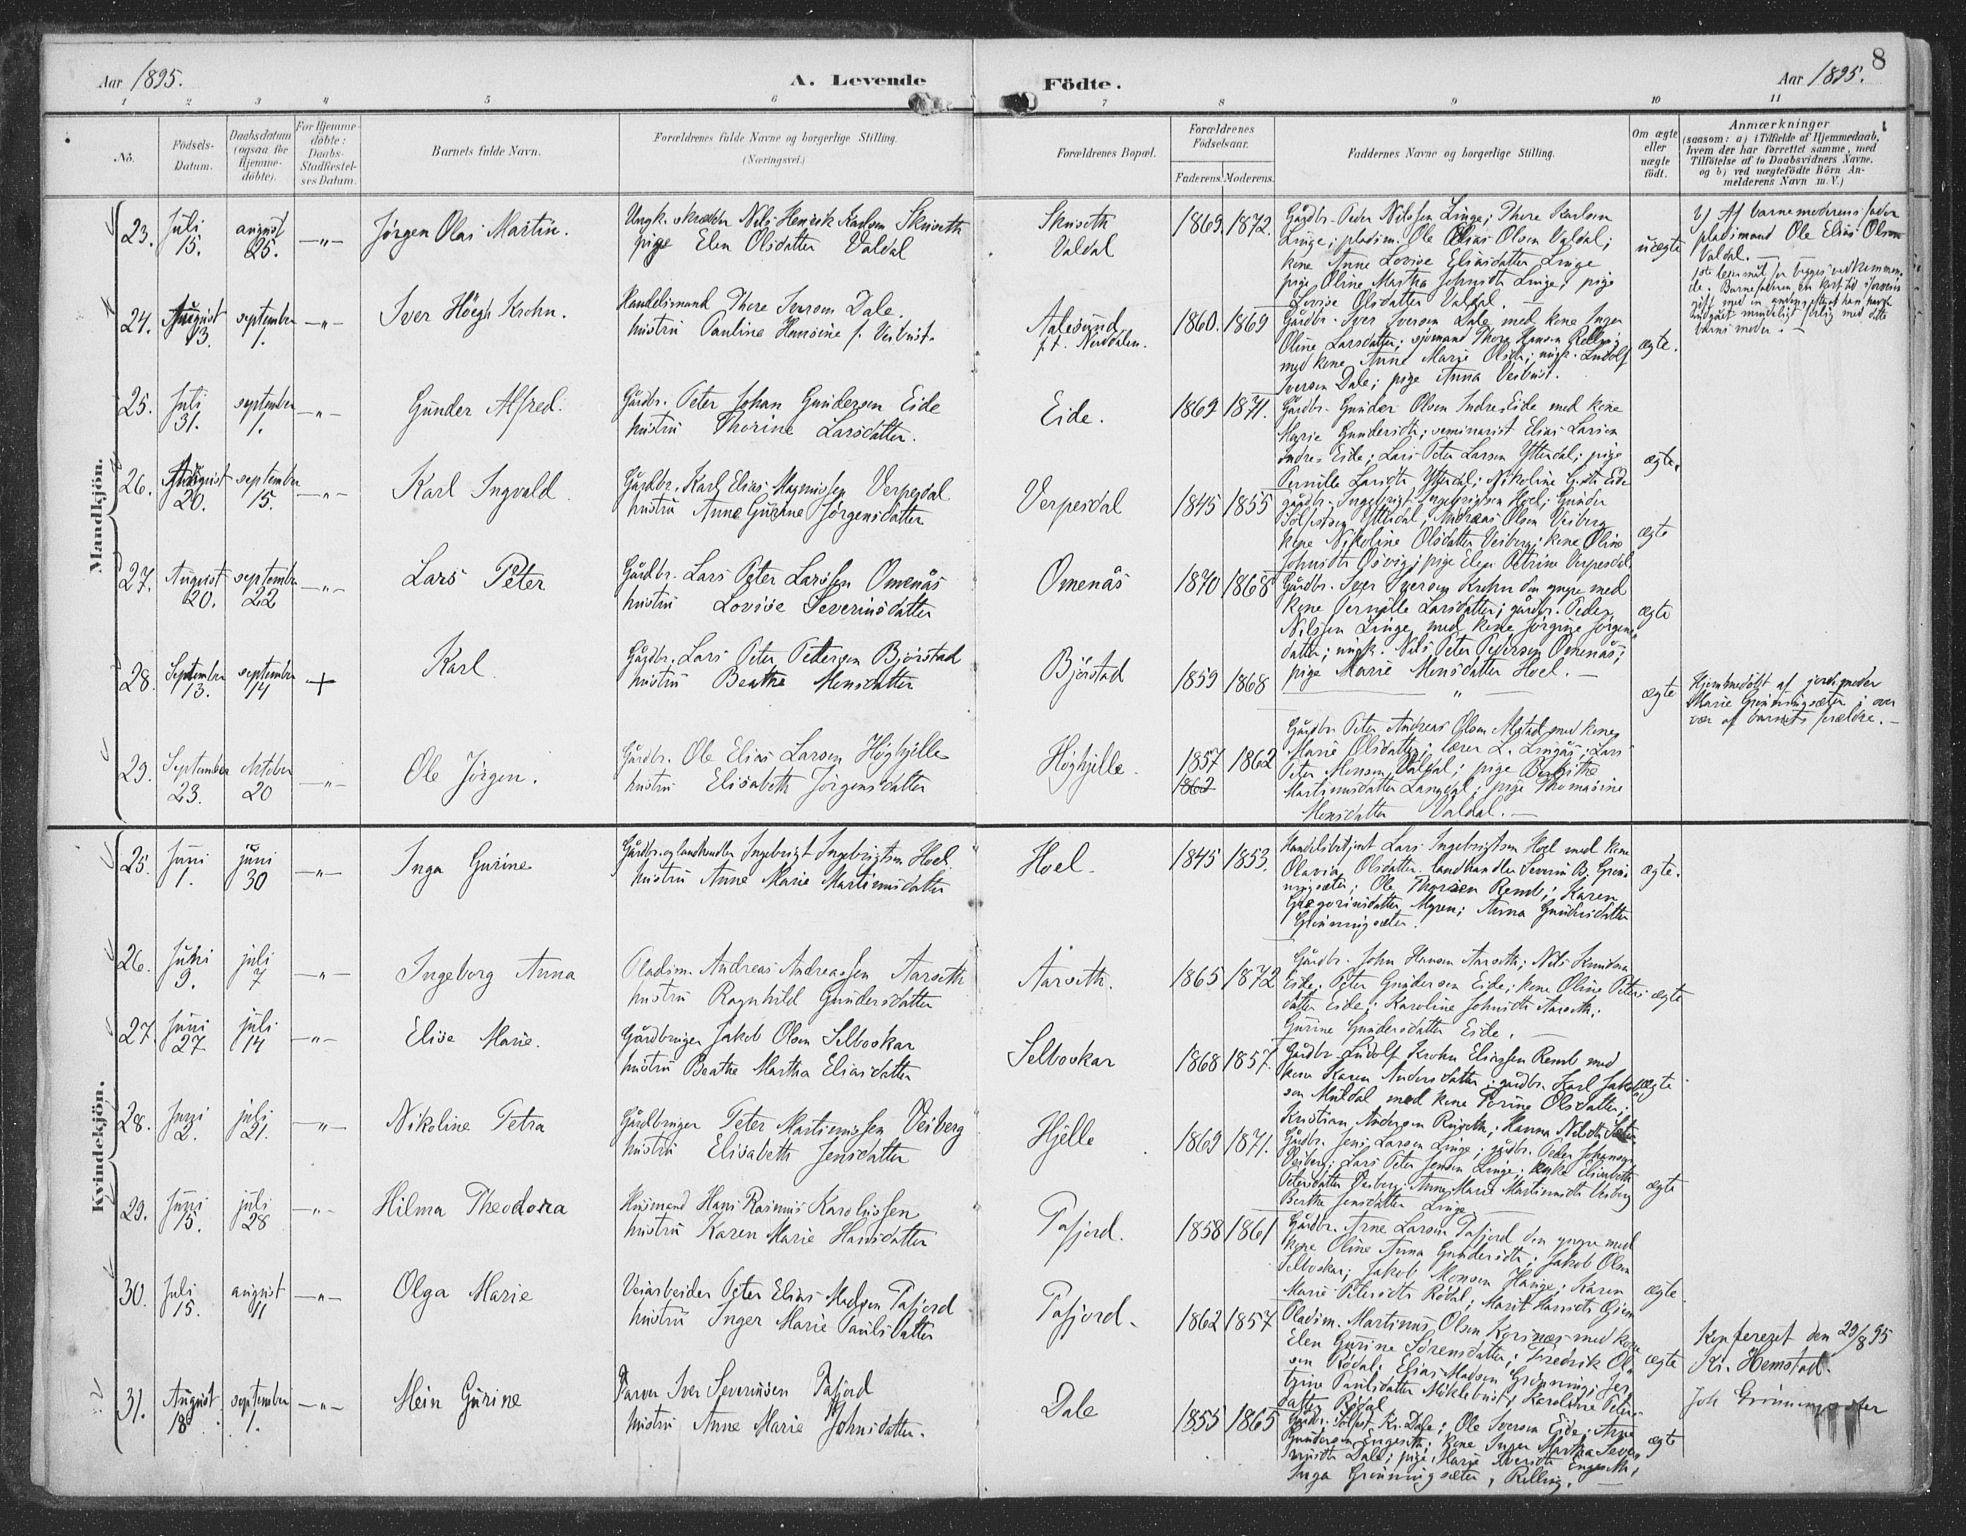 8
Aar 1895.
A. Levende
Födte.
Aar 1895.
1 2 3 4 5 6 7 8 9 10 11
No.
Födsels-Datum.
Daabsdatum (ogsaa for Hjemme-döbte).
For Hjemme-döbte: Daabs-Stadfæstel-ses Datum.
Barnets fulde Navn.
Forældrenes fulde Navne og borgerlige Stilling. (Næringsvei.)
Forældrenes Bopæl.
Forældrenes Födselsaar.
Faderens. Moderens.
Faddernes Navne og borgerlige Stilling.
Om ægte eller uægte födt.
Anmærkninger
(saasom: a) i Tilfælde af Hjemmedaab, hvem der har forrettet samme, med Tilföielse af to Daabsvidners Navne, og b) ved uægtefödte Börn An-melderens Navn m. V.)
Mandkjön.
23. Juli 15. august 25. —„— Jørgen Olai Martin.
Ungk. skrædder Nils Henrik Karlsen Skuseth
pige Elen Olsdatter Valdal
Skuseth
Valdal
1869. 1872.
Gårdbr. Peder Nilssen Linge; Thore Karlsen
Linge; pladsm. Ole Elias Olsen Valdal;
kone Anne Lovise Eliasdatter Linge
pige Oline Martha Johnsdt Linge; pige
Lovise Olsdatter Valdal. —
uægte
b) Af barnemoderens fader
pladsmand Ole Elias Olsen
Valdal. —
24. August 13. september 1. —„— Iver Höegh Krohn.
Handelsmand Thore Iversen Dale.
hustru Pauline Hansine f. Veibust.
Aalesund
p.t. Norddalen.
1860. 1869
Gårdbr. Iver Iversen Dale med kone Inger
Oline Larsdatter; sjömand Thore Hansen Relling
med kone Anne Marie Olsdt; ungk. Ludolf
Iversen Dale; pige Anna Veibust.
ægte.
25. Juli 31. september 1. —„— Gunder Alfred.
Gårdbr. Peter Johan Gundersen Eide
hustru Thorine Larsdatter.
Eide.
1869 1871.
Gårdbr. Gunder Olsen Indre Eide med kone
Marie Gundersdtr; seminarist Elias Larsen
Indre Eide; Lars Peter Larsen Ytterdal; pige
Pernille Larsdt Ytterdal; Nikoline G.dtr Eide
ægte.
26. August 20. september 15. —„— Karl Ingvald.
Gårdbr. Karl Elias Magnussen Verpesdal
hustru Anne Gurine Jørgensdatter
Verpesdal
1845 1855
gårdbr. Ingebrigt Ingebrigtsen Hoel; Gunder
Ytterdal; Andreas Olsen Veiberg
kone Nikoline Olsdatter Veiberg; kone Oline
Johnsdt; pige Elen Petrine Verpesdal
ægte
27. August 20. september 22 —„— Lars Peter
Gårdbr. Lars Peter Larssen Omenås
hustru Lovise Severinsdatter
Omenås
1870 1868
Gårdbr. Iver Iversen Krohn den yngre med
kone Pernille Larsdatter; gårdbr. Peder
Nilssen Linge med kone Jørgine Jørgens-
datter; ungk. Nils Peter Pedersen Omenås;
pige Marie Monsdatter Hoel. —
ægte
28. September 13. september 14 + Karl
Gårdbr. Lars Peter Pettersen Bjørstad
hustru Beathe Monsdatter
Bjørstad
1859 1868
„
ægte
Hjemmedöbt af jordmoder
Marie Grønningsæter i over
vær af barnets forældre. —
29. September 23. oktober 20 —„— Ole Jørgen.
Gårdbr. Ole Elias Larsen Høghjelle
hustru Elisabeth Jørgensdatter
Høghjelle.
1857 1862
1862
Gårdbr. Peter Andreas Olsen Alstad med kone
Marie Olsdatter; lærer L. Lingås; Lars
Peter Monsen Valdal; pige Bergithe
Martinusdatter Langdal; pige Thomasine
Monsdatter Valdal. —
Kvindekjön.
25. Juni 1. juni 30 —„— Inga Gurine
Gårdbr. og landhandler Ingebrigt Ingebrigtsen Hoel
hustru Anne Marie Martinusdatter
Hoel.
1845 1853.
Handelsbetjent Lars Ingebrigtsen Hoel med kone
Olavia Olsdatter. landhandler Severin B. Grøn-
ningsæter; Ole Thorsen Remb; Karen
Gregoriusdatter Myren; Anna Gundersdatter
Grønningsæter.
ægte.
26. Juni 9. juli 7 —„— Ingeborg Anna
Pladsm. Andreas Andreassen Aarseth
hustru Ragnhild Gundersdatter
Aarseth.
1865 1872
Gårdbr. John Hansen Aarseth; Nils Knudsen
Eide; Peter Gundersen Eide; kone Oline Peters-
datter Eide; Karoline Johnsdt Aarseth;
Gurine Gundersdatter Eide. —
ægte
27. Juni 27 juli 14 —„— Elise Marie.
Gårdbruger Jakob Olsen Selboskar
hustru Beathe Martha Eliasdatter
Selboskar
1868 1857.
Gårdbr. Ludolf Krohn Eliassen Remb med
kone Karen Andersdatter; gårdbr. Karl Jakob-
sen Muldal med kone Torine Olsdatter;
Kristian Andersen; Hanna Nilsdt
ægte
28. Juni 2. juli 21. —„— Nikoline Petra
Gårdbruger Peter Martinussen Veiberg
hustru Elisabeth Jensdatter
Hjelle
1869 1871.
Gårdbr. Jens Larsen Linge; gårdbr. Peder Johansen
Veiberg; Lars Peter Jensen Linge; Elisabeth
Petersdatter Veiberg; Anne Marie Martinusdt Veiberg
Berthe Jensdatter Linge. —
ægte
29. Juni 15. juli 28 —„— Hilma Theodora
Husmand Hans Rasmus Karolussen
hustru Karen Marie Hansdatter
Tafjord.
1858 1861
Gårdbr. Arne Larsen Tafjord den yngre med
kone Oline Anna Gundersdtr; Jakob Olsen
Selboskar; Jakob Monsen Hauge; Karen
Marie Petersdtr Rødal; Marit Hansdtr
ægte.
30. Juli 15. august 11 —„— Olga Marie
Veiarbeider Peter Elias Madsen Tafjord
hustru Inger Marie Paulsdatter
Tafjord.
1862 1857
Pladsm. Martinus Olsen Korsnæs med kone
Elen Gurine Sørensdatter; Fredrik Ol-
sen Rødal; Elias Madsen Grønning; Jer-
trine Paulsdatter Möklebust; Karoline Peters-
datter Rødal
ægte
Konfereret den 29/8 95
Kr. Hemstad.
Joh Grønningsæter
31. August 18 september 1. —„— Mein Gurine
Farver Iver Severinsen Tafjord
hustru Anne Marie Johnsdatter.
Dale
1855 1865
Gårdbr. Kr. Dale; Ole Iversen Eide; Arne
Gundersen Engeseth; kone Inger Martha Sever-
insdtr Dale; pige Marie Iversdt Engeseth;
Inga Grønningsæter, Relling. —
ægte